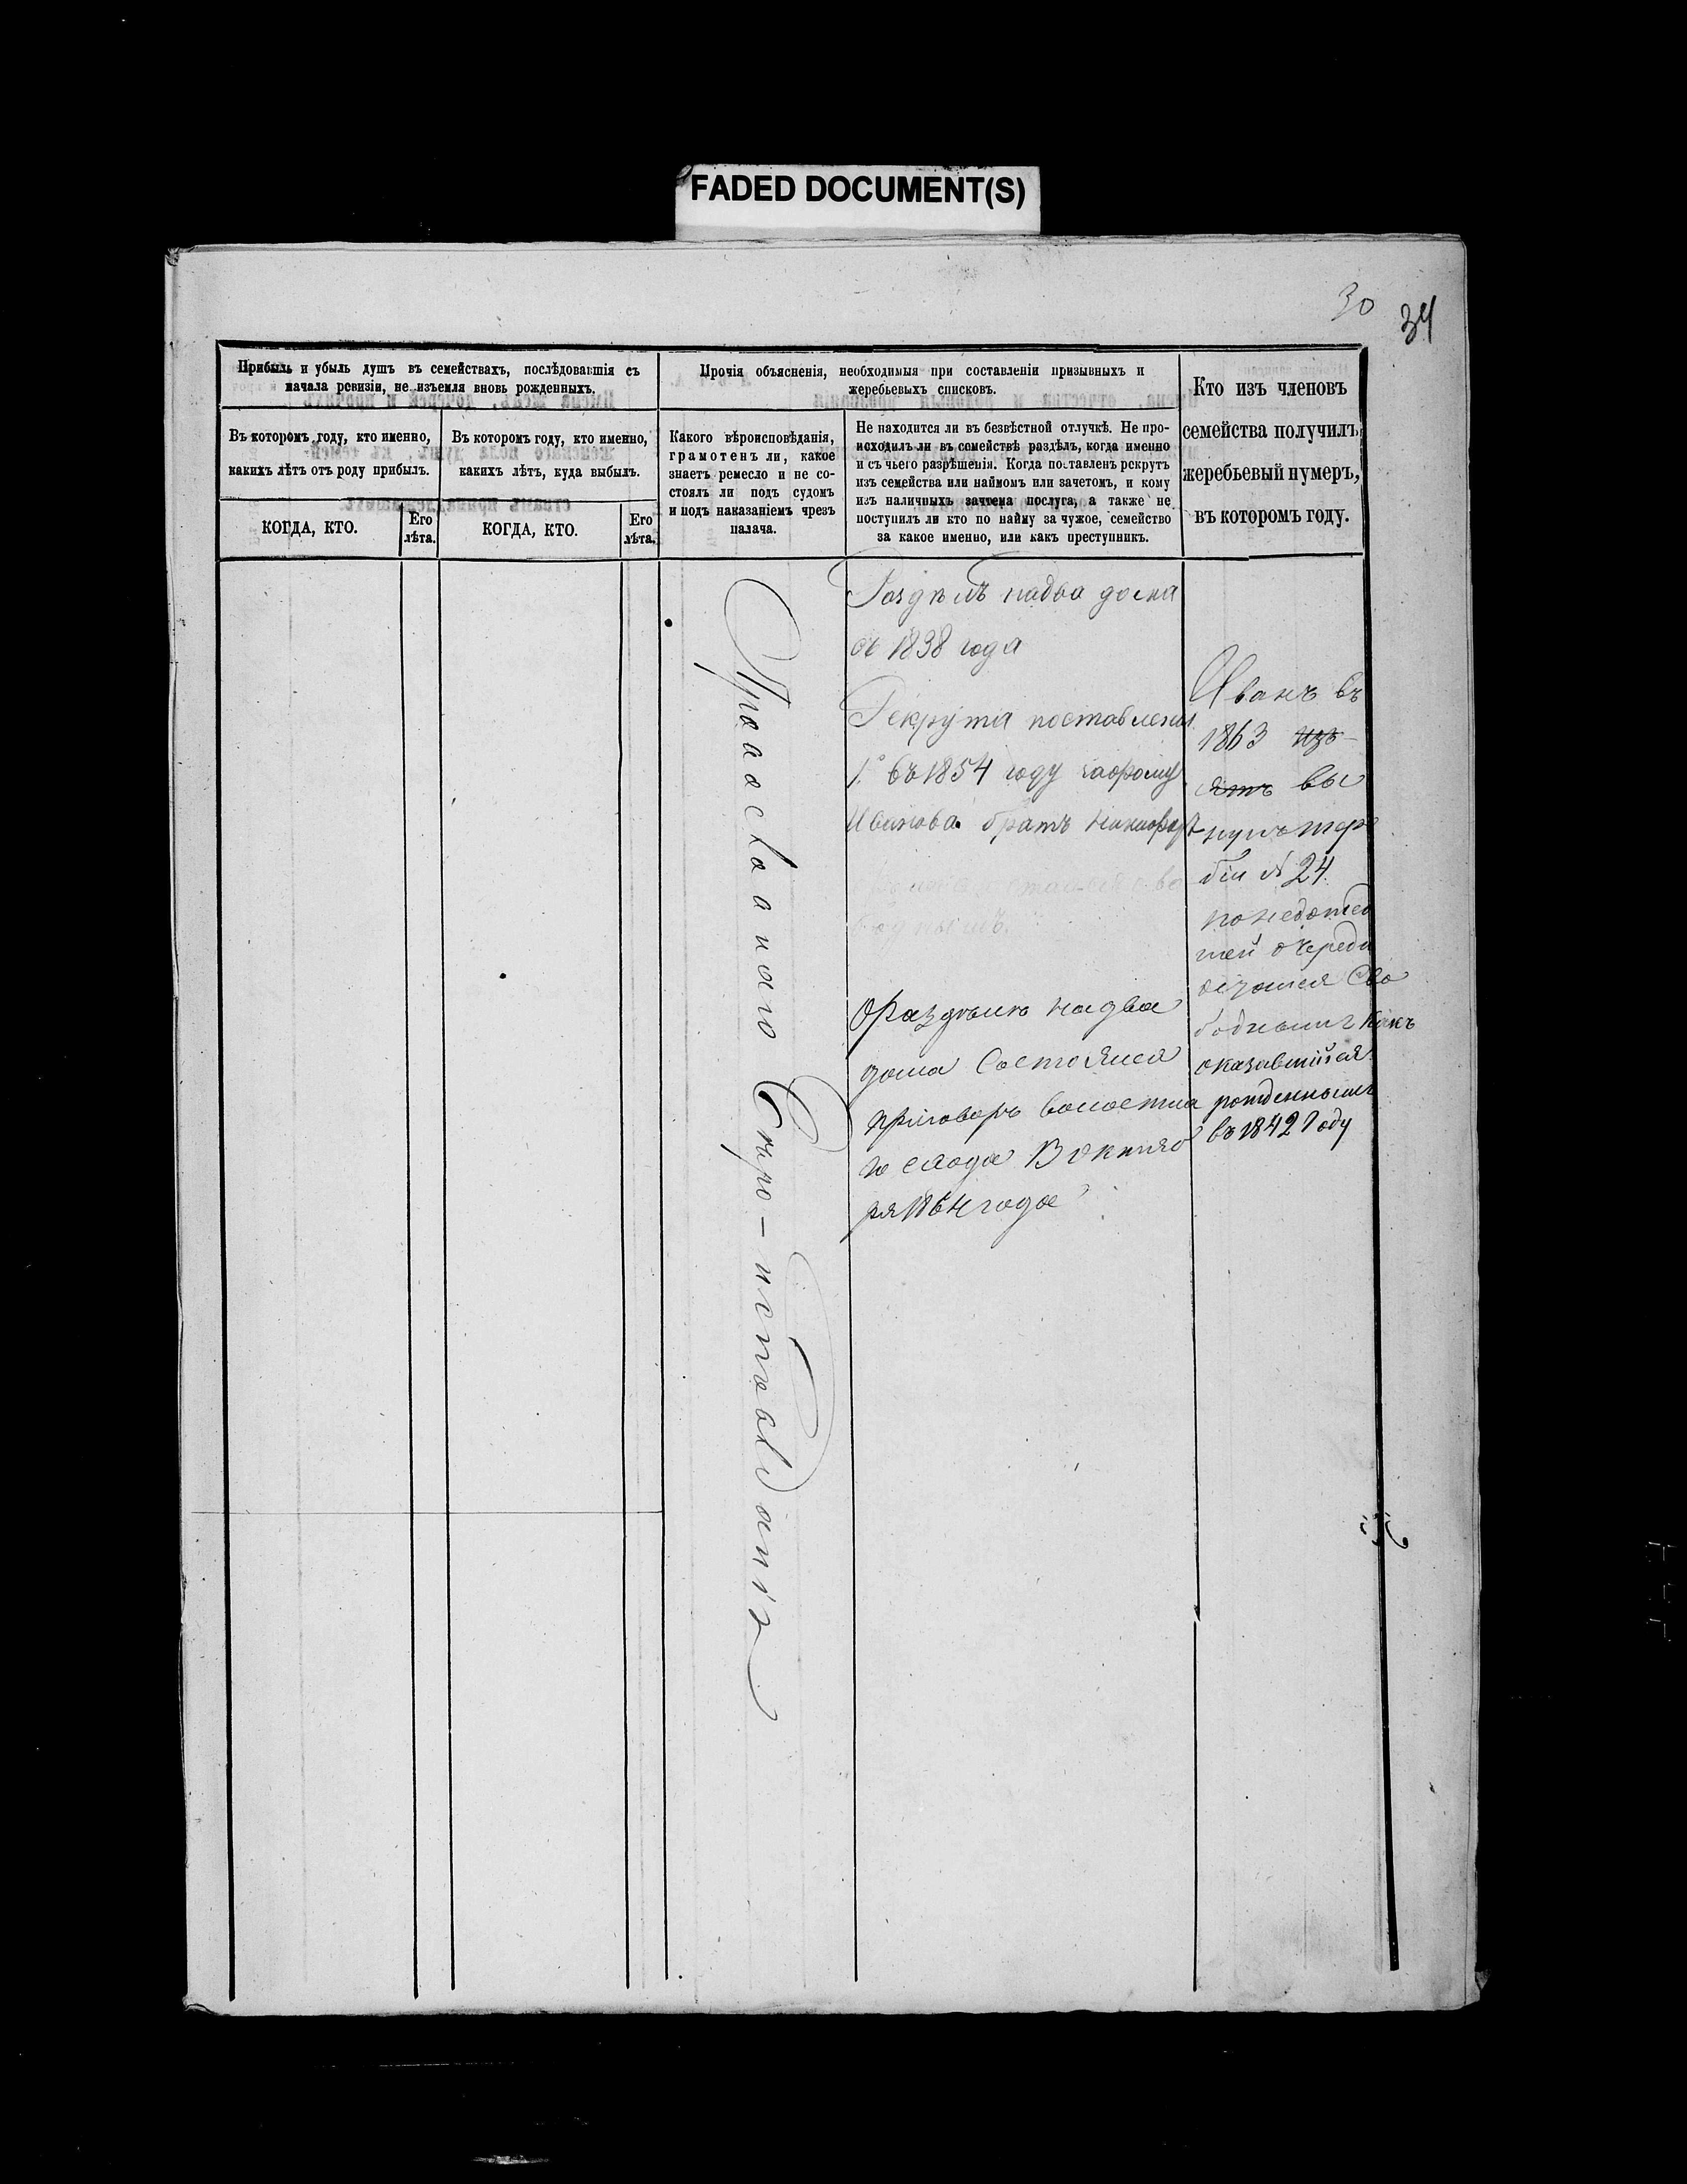 FADED DOCUMENT(S)
30
34
Прибыль и убыль душъ въ семействахъ, послѣдовавшія съ
начала ревизіи, не изъемля вновь рожденныхъ.
Въ которомъ году, кто именно,
какихъ лѣтъ отъ роду прибылъ.
КОГДА, КТО.
Его
лѣта.
Въ которомъ году, кто именно,
какихъ лѣтъ, куда выбылъ.
КОГДА, КТО.
Его
лѣта.
Прочія объясненія, необходимыя при составленіи призывныхъ и
жеребьевыхъ списковъ.
Какого вѣроисповѣданія,
грамотенъ ли, какое
знаетъ ремесло и не со-
стоялъ ли подъ судомъ
и подъ наказаніемъ чрезъ
палача.
Не находится ли въ безвѣстной отлучкѣ. Не про-
исходилъ ли въ семействѣ раздѣлъ, когда именно
и съ чьего разрѣшенія. Когда поставленъ рекрутъ
изъ семейства или наймомъ или зачетомъ, и кому
изъ наличныхъ зачтена послуга, а также не
поступилъ ли кто по найму за чужое, семейство
за какое именно, или какъ преступникъ.
Кто изъ членовъ
семейства получилъ
жеребьевый нумеръ,
въ которомъ году.
Православнаго
Раздѣлъ надва дома
съ 1838 года
Рекрута поставлена
1. въ 1854 году
Иванова братъ Никифоръ
Раздѣлъ надва
дома Состоялся
приговоръ волостна
го схода В октяб
ря 1864 года
Иванъ въ
1863 изъ
ятъ вы
нулъ жере
бій № 24
понедошед
шей очереди
остался Сво
боднымъ Какъ
оказавшійся
рожденнымъ
въ 1842 Году